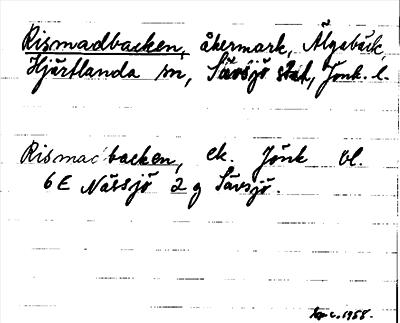 Rismadbacken, åkermark, Älgabäck,
Hjärtlanda sn, Sävsjö stad, Jönk. l.
Rismadbacken, ek. Jönk bl.
6E Nässjö 2 g Sävsjö.
1958.